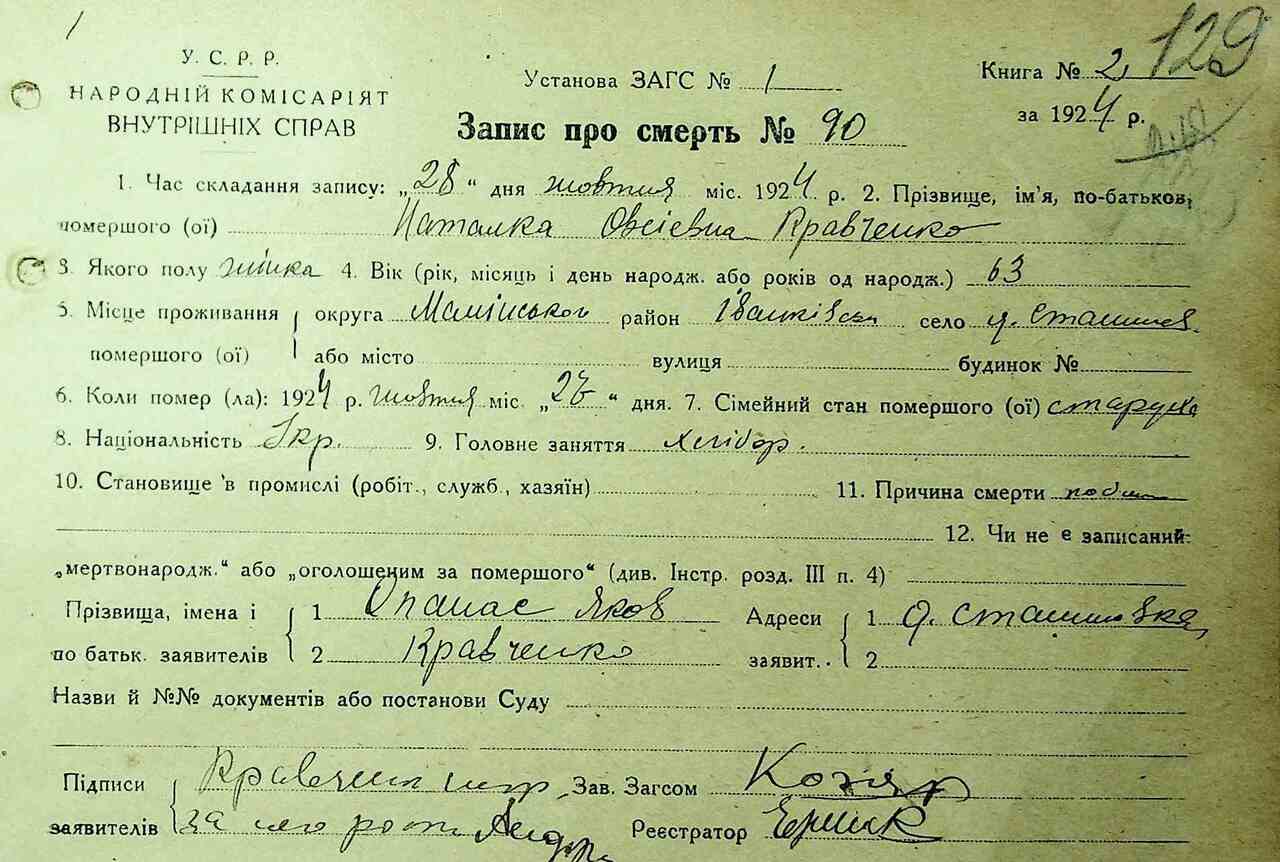 1
129
У. С. Р. Р.
НАРОДНІЙ КОМІСАРІЯТ
ВНУТРІШНІХ СПРАВ
Установа ЗАГС № 1
Книга № 2
за 1924 р.
Запис про смерть № 90
1. Час складання запису: „28“ дня жовтня міс. 1924 р. 2. Прізвище, ім'я, по-батькові
помершого (ої) Наталка Овсіевна Кравченко
3. Якого полу жінка 4. Вік (рік, місяць і день народж. або років од народж.) 63
5. Місце проживання округа район село
помершого (ої) або місто вулиця будинок №
6. Коли помер (ла): 1924 р. жовтня міс. „27“ дня. 7. Сімейний стан помершого (ої) старуха
8. Національність Укр. 9. Головне заняття хлібор.
10. Становище в промислі (робіт., служб., хазяїн) 11. Причина смерти
12. Чи не є записаний:
„мертвонародж.“ або „оголошеним за помершого“ (див. Інстр. розд. III п. 4)
Прізвища, імена і 1 Опанас Яков Адреси 1
по батьк. заявителів 2 Кравченко заявит. 2
Назви й №№ документів або постанови Суду
Підписи Зав. Загсом
заявителів за Реєстратор